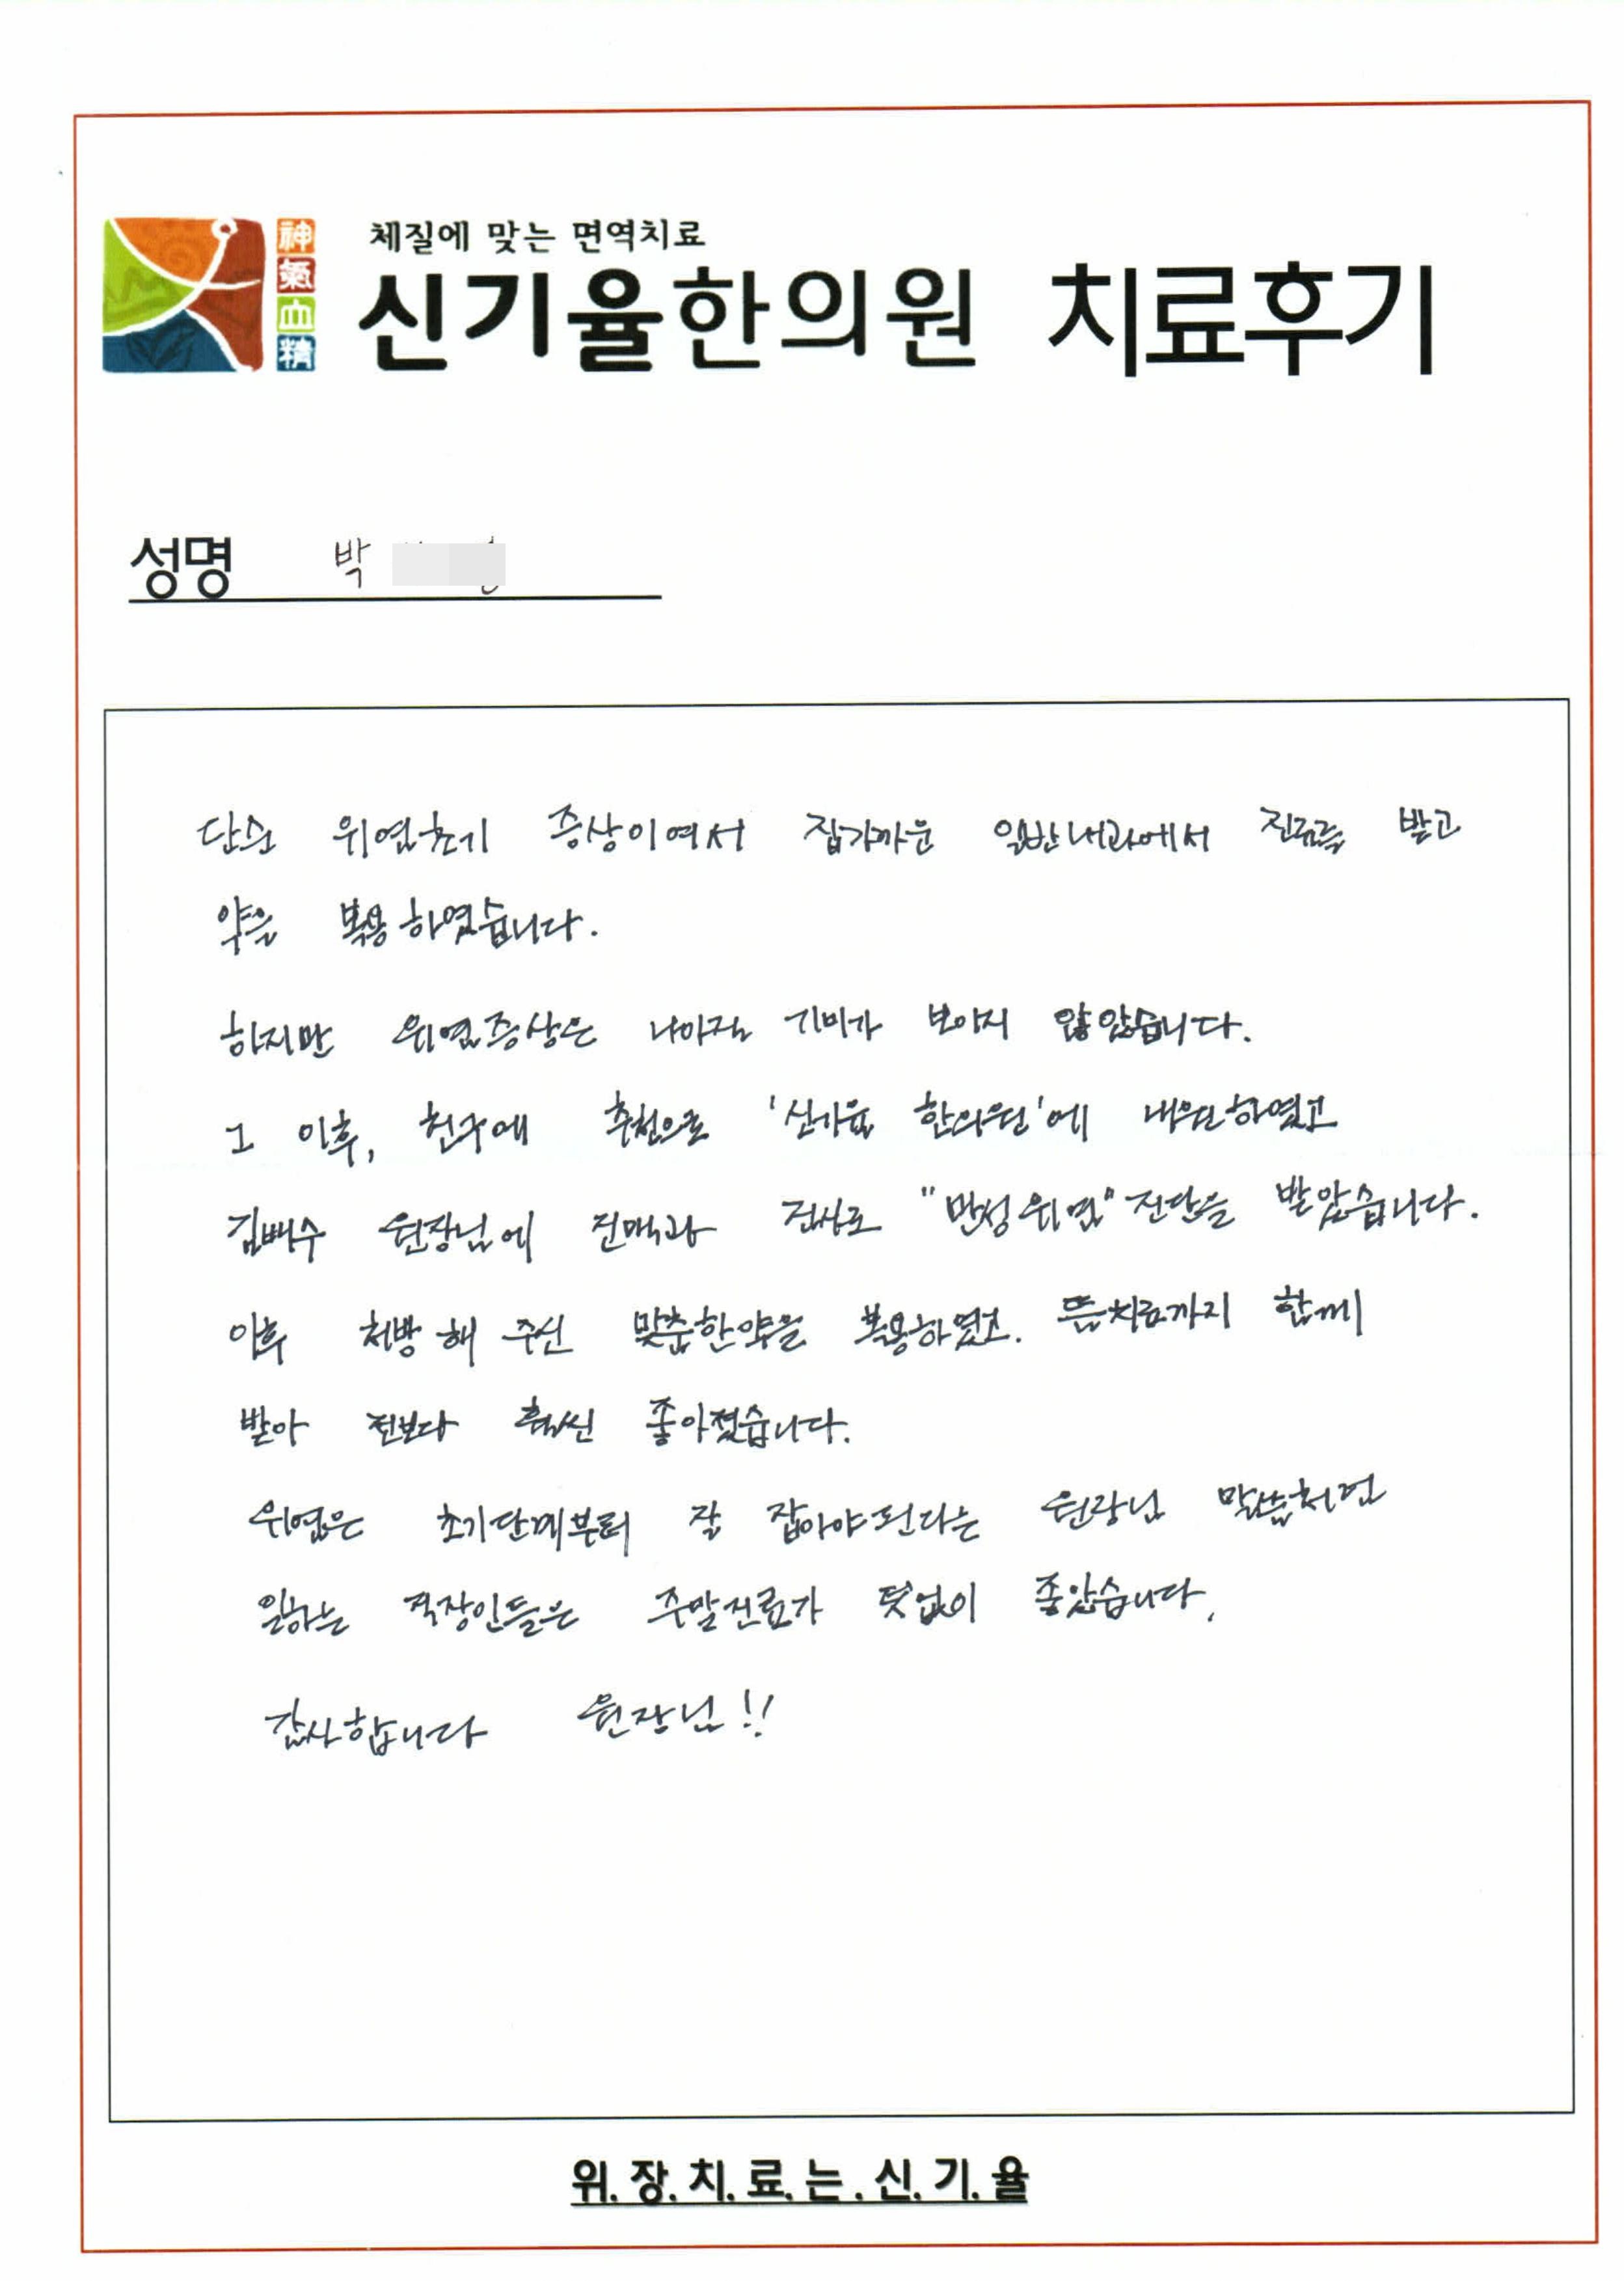 神
氣
血
精
체질에 맞는 면역치료
신기율한의원 치료후기
성명 박
단순 위염초기 증상이여서 집가까운 일반내과에서 진료를 받고
약을 복용하였습니다.
하지만 위염증상은 나아질 기미가 보이지 않았습니다.
그 이후, 친구에 추천으로 '신기율 한의원'에 내원하였고
김뻐수 원장님에 진맥과 진상로 "만성위염" 진단을 받았습니다.
이후 처방해 주신 맞춤한약을 복용하였고. 뜸치료까지 함께
받아 전보다 훨씬 좋아졌습니다.
위염은 초기단계부터 잘 잡아야된다는 원장님 말씀처럼
일하는 직장인들은 주말진료가 덧없이 좋았습니다.
감사합니다 원장님!!
위.장.치.료.는.신.기.율